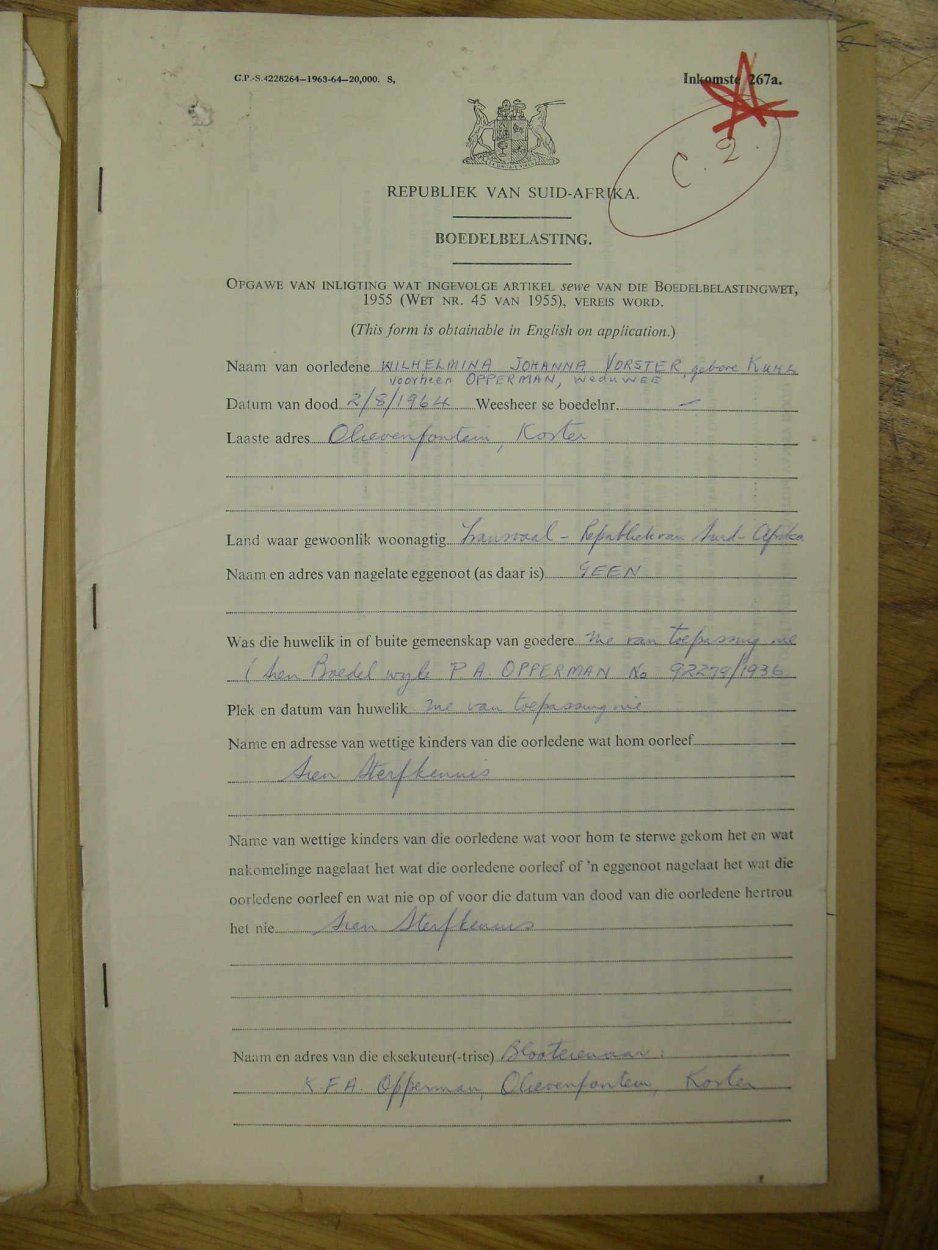 G.P.-S.4228264—1963-64—20,000. S.
Inkomste 267a.
C. 2.
REPUBLIEK VAN SUID-AFRIKA.
BOEDELBELASTING.
OPGAWE VAN INLIGTING WAT INGEVOLGE ARTIKEL sewe VAN DIE BOEDELBELASTINGWET,
1955 (WET NR. 45 VAN 1955), VEREIS WORD.
(This form is obtainable in English on application.)
Naam van oorledene WILHELMINA JOHANNA VORSTER, gebore KUHL
voorheen OPPERMAN, WEDUWEE
Datum van dood 2/8/1964 Weesheer se boedelnr. —
Laaste adres Olievenfontein, Koster
Land waar gewoonlik woonagtig Transvaal - Republiek van Suid-Afrika
Naam en adres van nagelate eggenoot (as daar is) GEEN
Was die huwelik in of buite gemeenskap van goedere nie van toepassing nie
(Sien Boedel wyle P A. OPPERMAN No 92279/1936
Plek en datum van huwelik nie van toepassing nie
Name en adresse van wettige kinders van die oorledene wat hom oorleef
Sien Sterfkennis
Name van wettige kinders van die oorledene wat voor hom te sterwe gekom het en wat
nakomelinge nagelaat het wat die oorledene oorleef of 'n eggenoot nagelaat het wat die
oorledene oorleef en wat nie op of voor die datum van dood van die oorledene hertrou
het nie Sien Sterfkennis
Naam en adres van die eksekuteur(-trise)
F.A. Opperman, Olievenfontein, Koster